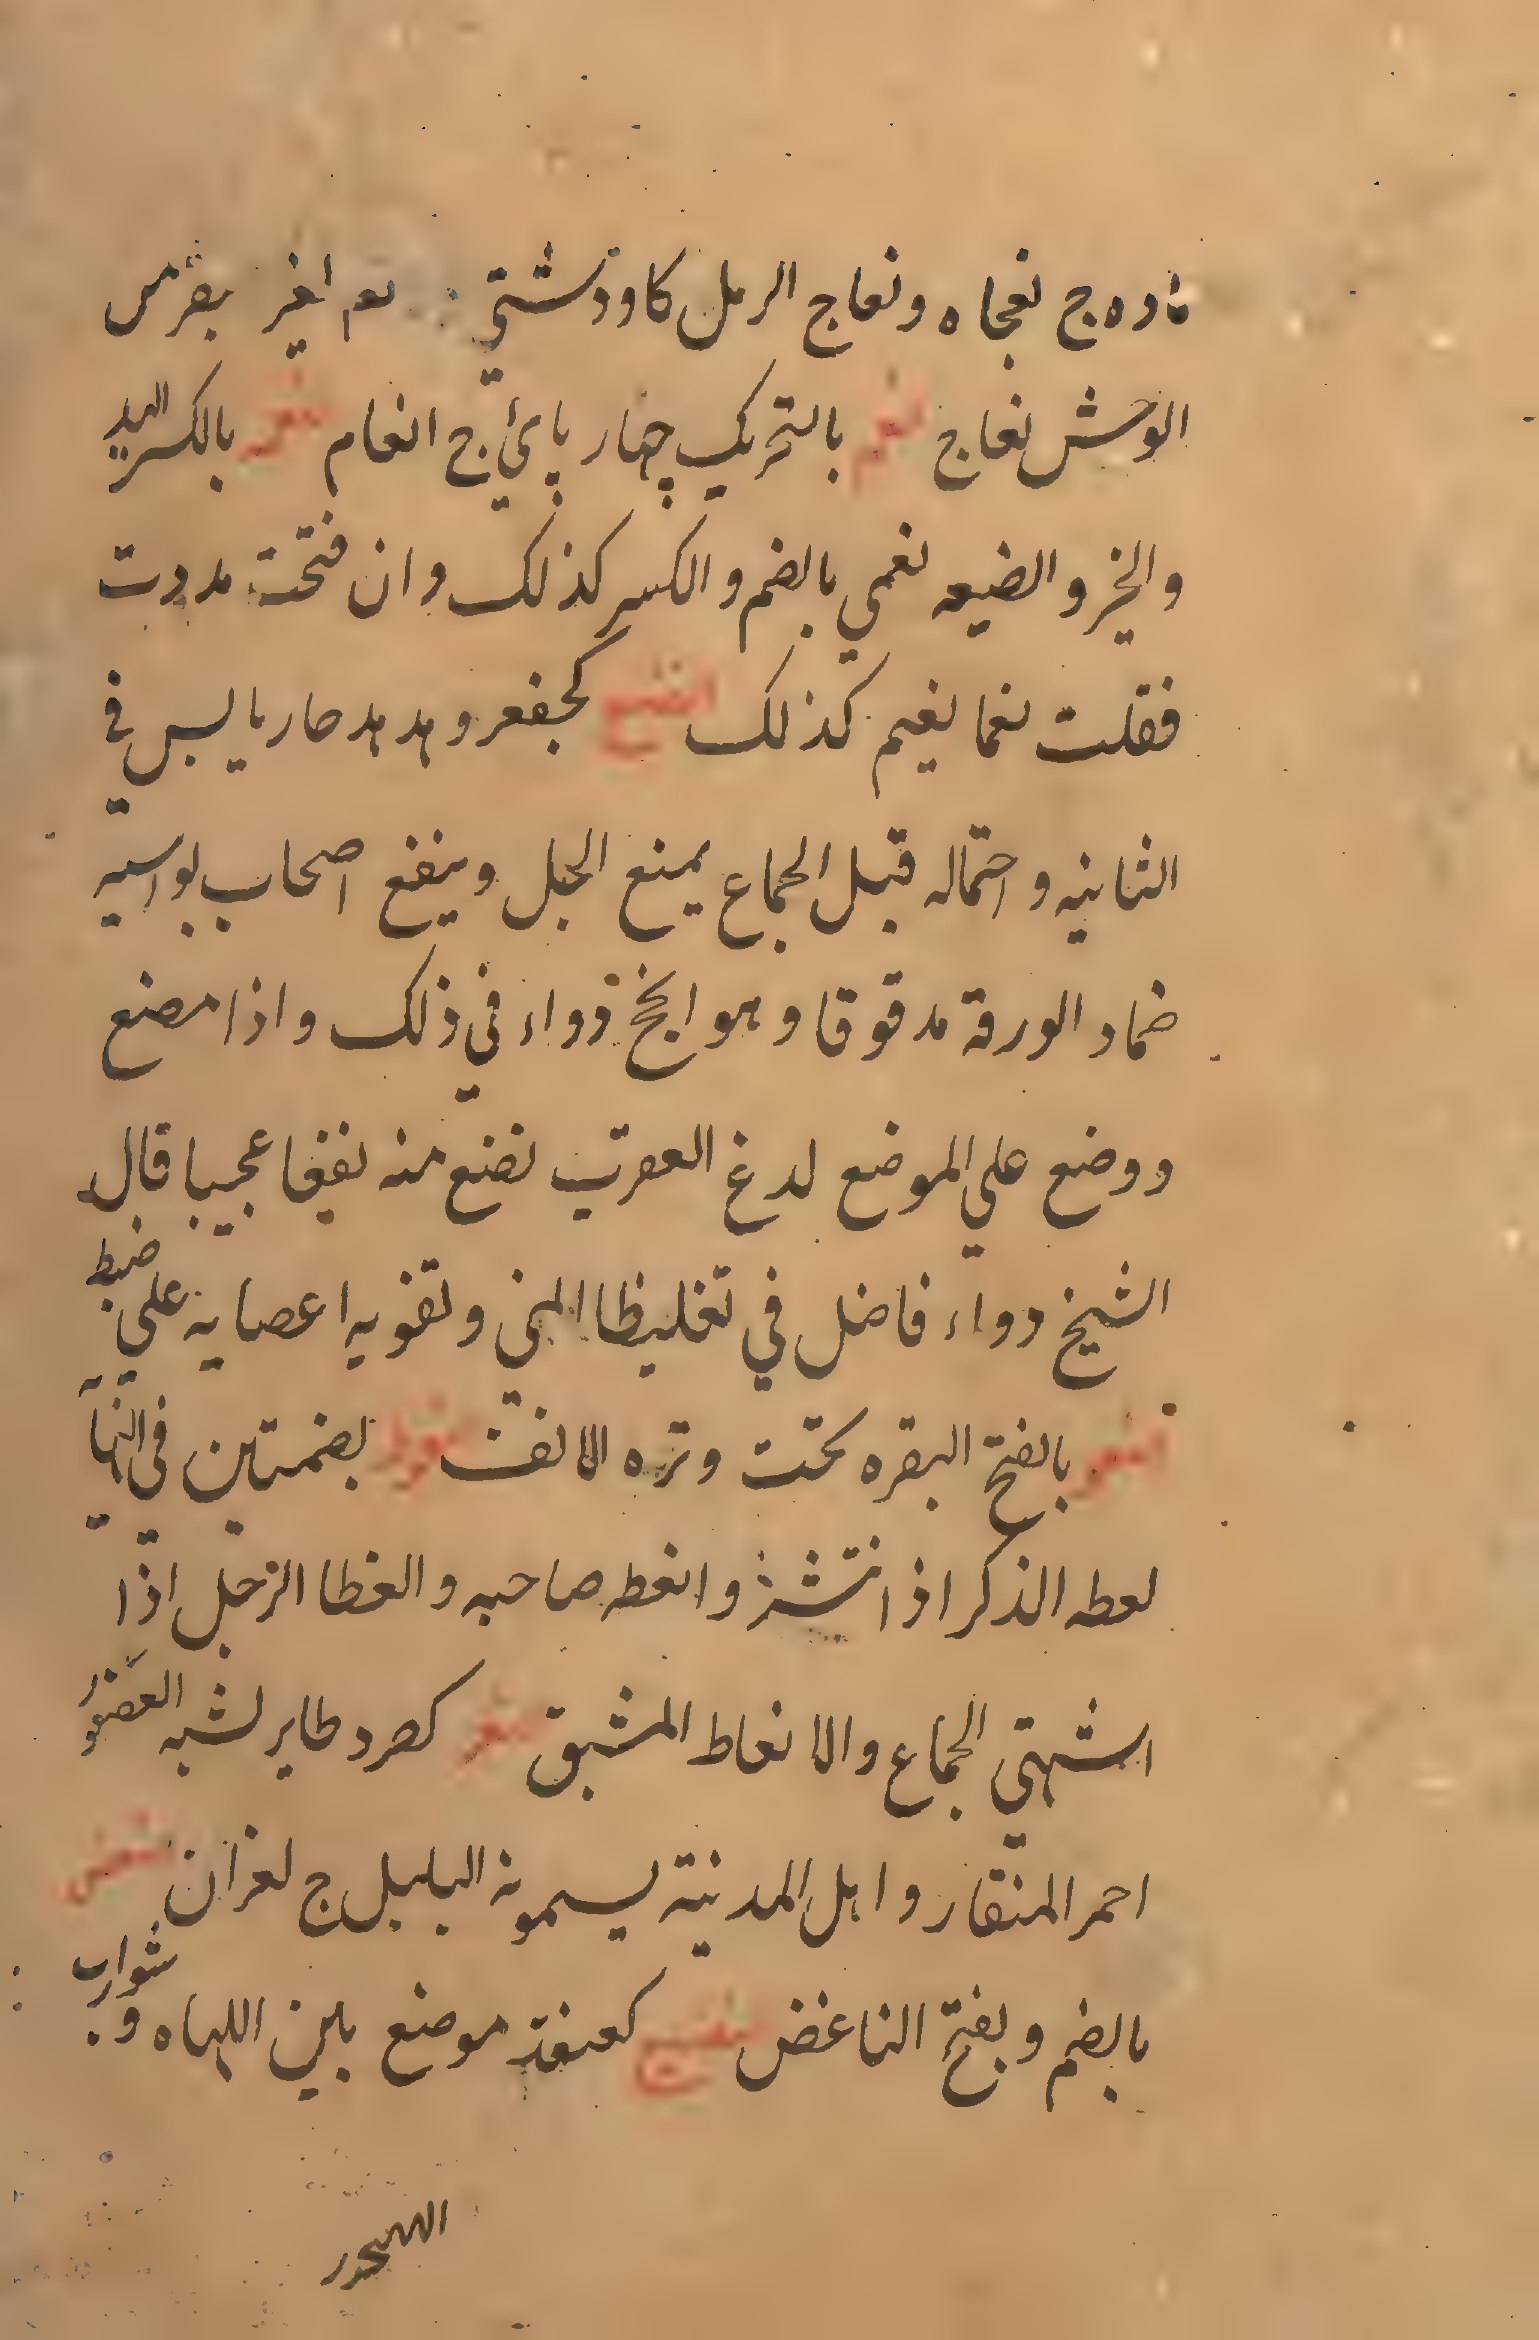 ماده ج نعجاه ونعاج الرمل كاو دشتي لغير بقر من
الوحش نعاج نعم بالتحريك چهار پائي ج انعام نعمه بالكسر اليد
والخير والضيعه نعمي بالضم والكسر كذلك وان فتحت مددت
فقلت نعما نعيم كذلك كجعفر وهدهد حار يابس في
الثانيه واحتماله قبل الجماع يمنع الحبل وينفع اصحاب بواسير
ضماد الورقة مدقوقا وهو انجح دواء في ذلك واذا مضغ
ووضع علي الموضع لدغ العقرب نضع منه نفعا عجيبا قال
الشيخ دواء فاضل في تغليظ المني وتقويه اعصابه علي ضبط
بالفتح البقره تحت وتره الانف نعوظ بضمتين في النهاية
لعطه الذكر اذا انتشر وانعطه صاحبه والعطا الرجل اذا
اشتهي الجماع والانعاط المشبق نغر كصرد طاير لشبه العصفور
احمر المنقار واهل المدينة يسمونه البلبل ج لغران نغض
بالضم وبفتح الناغض موضع بين اللهاه و شوارب